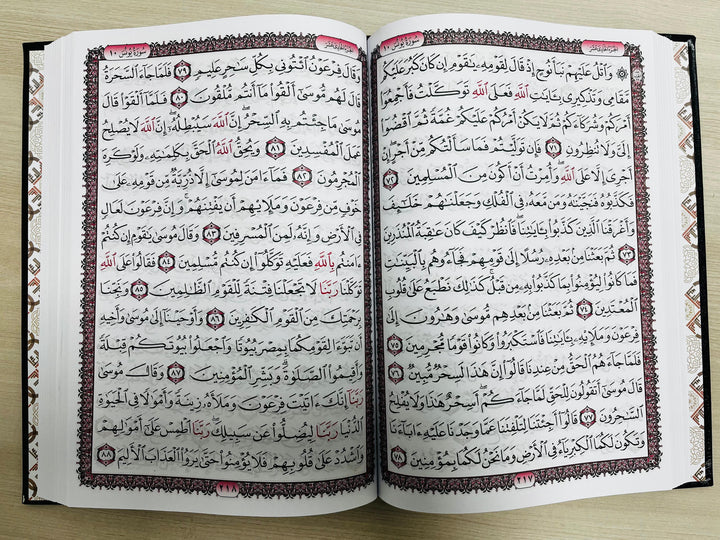 الجزء الحادي عشر
سورة يونس ١٠
۞ وَٱتْلُ عَلَيْهِمْ نَبَأَ نُوحٍ إِذْ قَالَ لِقَوْمِهِۦ يَٰقَوْمِ إِن كَانَ كَبُرَ عَلَيْكُم
مَّقَامِى وَتَذْكِيرِى بِـَٔايَٰتِ ٱللَّهِ فَعَلَى ٱللَّهِ تَوَكَّلْتُ فَأَجْمِعُوٓا۟
أَمْرَكُمْ وَشُرَكَآءَكُمْ ثُمَّ لَا يَكُنْ أَمْرُكُمْ عَلَيْكُمْ غُمَّةً ثُمَّ ٱقْضُوٓا۟
إِلَىَّ وَلَا تُنظِرُونِ ٧١ فَإِن تَوَلَّيْتُمْ فَمَا سَأَلْتُكُم مِّنْ أَجْرٍ إِنْ
أَجْرِىَ إِلَّا عَلَى ٱللَّهِ وَأُمِرْتُ أَنْ أَكُونَ مِنَ ٱلْمُسْلِمِينَ ٧٢
فَكَذَّبُوهُ فَنَجَّيْنَٰهُ وَمَن مَّعَهُۥ فِى ٱلْفُلْكِ وَجَعَلْنَٰهُمْ خَلَٰٓئِفَ
وَأَغْرَقْنَا ٱلَّذِينَ كَذَّبُوا۟ بِـَٔايَٰتِنَا فَٱنظُرْ كَيْفَ كَانَ عَٰقِبَةُ ٱلْمُنذَرِينَ
٧٣ ثُمَّ بَعَثْنَا مِنۢ بَعْدِهِۦ رُسُلًا إِلَىٰ قَوْمِهِمْ فَجَآءُوهُم بِٱلْبَيِّنَٰتِ
فَمَا كَانُوا۟ لِيُؤْمِنُوا۟ بِمَا كَذَّبُوا۟ بِهِۦ مِن قَبْلُ كَذَٰلِكَ نَطْبَعُ عَلَىٰ قُلُوبِ
ٱلْمُعْتَدِينَ ٧٤ ثُمَّ بَعَثْنَا مِنۢ بَعْدِهِم مُّوسَىٰ وَهَٰرُونَ إِلَىٰ
فِرْعَوْنَ وَمَلَإِي۟هِۦ بِـَٔايَٰتِنَا فَٱسْتَكْبَرُوا۟ وَكَانُوا۟ قَوْمًا مُّجْرِمِينَ ٧٥
فَلَمَّا جَآءَهُمُ ٱلْحَقُّ مِنْ عِندِنَا قَالُوٓا۟ إِنَّ هَٰذَا لَسِحْرٌ مُّبِينٌ ٧٦
قَالَ مُوسَىٰٓ أَتَقُولُونَ لِلْحَقِّ لَمَّا جَآءَكُمْ أَسِحْرٌ هَٰذَا وَلَا يُفْلِحُ
ٱلسَّٰحِرُونَ ٧٧ قَالُوٓا۟ أَجِئْتَنَا لِتَلْفِتَنَا عَمَّا وَجَدْنَا عَلَيْهِ ءَابَآءَنَا
وَتَكُونَ لَكُمَا ٱلْكِبْرِيَآءُ فِى ٱلْأَرْضِ وَمَا نَحْنُ لَكُمَا بِمُؤْمِنِينَ ٧٨
٢١٧
الجزء الحادي عشر
سورة يونس ١٠
وَقَالَ فِرْعَوْنُ ٱئْتُونِى بِكُلِّ سَٰحِرٍ عَلِيمٍ ٧٩ فَلَمَّا جَآءَ ٱلسَّحَرَةُ
قَالَ لَهُم مُّوسَىٰٓ أَلْقُوا۟ مَآ أَنتُم مُّلْقُونَ ٨٠ فَلَمَّآ أَلْقَوْا۟ قَالَ
مُوسَىٰ مَا جِئْتُم بِهِ ٱلسِّحْرُ إِنَّ ٱللَّهَ سَيُبْطِلُهُۥٓ إِنَّ ٱللَّهَ لَا يُصْلِحُ
عَمَلَ ٱلْمُفْسِدِينَ ٨١ وَيُحِقُّ ٱللَّهُ ٱلْحَقَّ بِكَلِمَٰتِهِۦ وَلَوْ كَرِهَ
ٱلْمُجْرِمُونَ ٨٢ فَمَآ ءَامَنَ لِمُوسَىٰٓ إِلَّا ذُرِّيَّةٌ مِّن قَوْمِهِۦ عَلَىٰ
خَوْفٍ مِّن فِرْعَوْنَ وَمَلَإِي۟هِمْ أَن يَفْتِنَهُمْ وَإِنَّ فِرْعَوْنَ لَعَالٍ
فِى ٱلْأَرْضِ وَإِنَّهُۥ لَمِنَ ٱلْمُسْرِفِينَ ٨٣ وَقَالَ مُوسَىٰ يَٰقَوْمِ إِن كُنتُمْ
ءَامَنتُم بِٱللَّهِ فَعَلَيْهِ تَوَكَّلُوٓا۟ إِن كُنتُم مُّسْلِمِينَ ٨٤ فَقَالُوا۟ عَلَى ٱللَّهِ
تَوَكَّلْنَا رَبَّنَا لَا تَجْعَلْنَا فِتْنَةً لِّلْقَوْمِ ٱلظَّٰلِمِينَ ٨٥ وَنَجِّنَا
بِرَحْمَتِكَ مِنَ ٱلْقَوْمِ ٱلْكَٰفِرِينَ ٨٦ وَأَوْحَيْنَآ إِلَىٰ مُوسَىٰ وَأَخِيهِ
أَن تَبَوَّءَا لِقَوْمِكُمَا بِمِصْرَ بُيُوتًا وَٱجْعَلُوا۟ بُيُوتَكُمْ قِبْلَةً
وَأَقِيمُوا۟ ٱلصَّلَوٰةَ وَبَشِّرِ ٱلْمُؤْمِنِينَ ٨٧ وَقَالَ مُوسَىٰ
رَبَّنَآ إِنَّكَ ءَاتَيْتَ فِرْعَوْنَ وَمَلَأَهُۥ زِينَةً وَأَمْوَٰلًا فِى ٱلْحَيَوٰةِ
ٱلدُّنْيَا رَبَّنَا لِيُضِلُّوا۟ عَن سَبِيلِكَ رَبَّنَا ٱطْمِسْ عَلَىٰٓ أَمْوَٰلِهِمْ
وَٱشْدُدْ عَلَىٰ قُلُوبِهِمْ فَلَا يُؤْمِنُوا۟ حَتَّىٰ يَرَوُا۟ ٱلْعَذَابَ ٱلْأَلِيمَ ٨٨
٢١٨